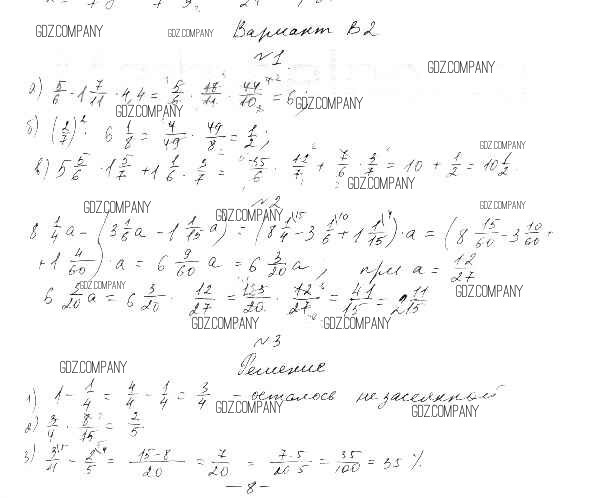 GDZ.COMPANY GDZ.COMPANY Вариант В2
№1 GDZ.COMPANY
а) 5/6 · 1 7/11 · 4,4 = 5/6 · 18/11 · 44/10 = 6;
GDZ.COMPANY
б) (2/7)² · 6 1/8 = 4/49 · 49/8 = 1/2;
GDZ.COMPANY
в) 5 5/6 · 1 5/7 + 1 1/6 · 3/7 = 35/6 · 12/7 + 7/6 · 3/7 = 10 + 1/2 = 10 1/2.
GDZ.COMPANY
GDZ.COMPANY №2 GDZ.COMPANY GDZ.COMPANY
8 1/4 a − (3 1/6 a − 1 1/15 a) = (8 1/4 − 3 1/6 + 1 1/15) · a = (8 15/60 − 3 10/60 +
+ 1 4/60) · a = 6 9/60 a = 6 3/20 a; при a = 12/27
GDZ.COMPANY GDZ.COMPANY
6 3/20 a = 6 3/20 · 12/27 = 123/20 · 12/27 = 41/15 = 2 11/15
GDZ.COMPANY GDZ.COMPANY
№3
GDZ.COMPANY Решение
1) 1 − 1/4 = 4/4 − 1/4 = 3/4 − осталось незасеянный
GDZ.COMPANY GDZ.COMPANY
2) 3/4 · 8/15 = 2/5
3) 3/4 − 2/5 = 15−8/20 = 7/20 = 7·5/20·5 = 35/100 = 35 %.
— 8 —